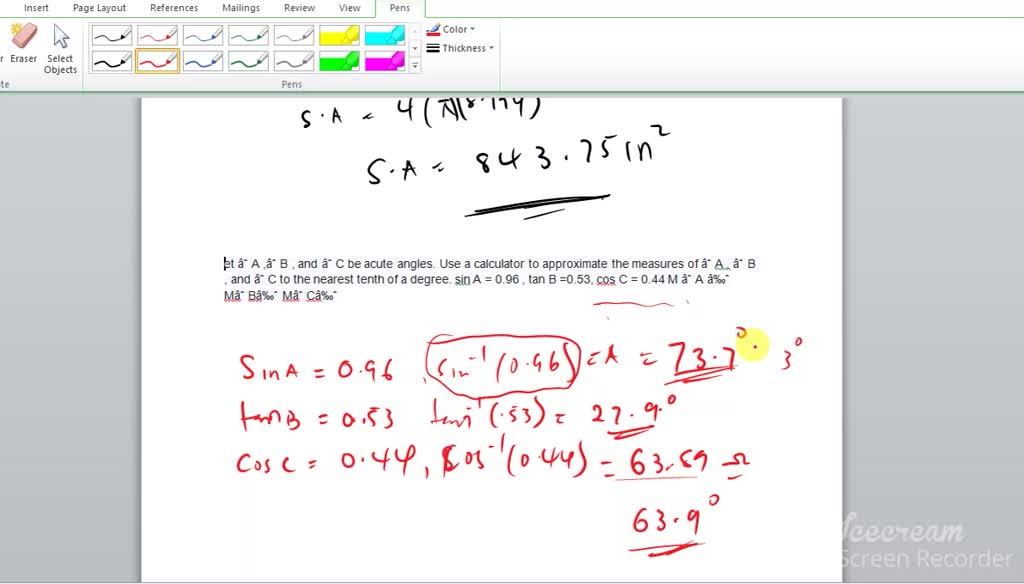 Insert Page Layout References Mailings Review View Pens
Eraser Select Objects
Color
Thickness
Pens
S.A =
S.A = 843.75 in²
et â^ A ,â^ B , and â^ C be acute angles. Use a calculator to approximate the measures of â^ A,, â^ B
, and â^ C to the nearest tenth of a degree. sin A = 0.96 , tan B =0.53, cos C = 0.44 M â^ A â‰ˆ
Mâ^ Bâ‰ˆ Mâ^ Câ‰ˆ
Sin A = 0.96 , sin⁻¹(0.96) = A = 73.7° 3°
tan B = 0.53 tan⁻¹(.53) = 27.9°
Cos C = 0.44 , Cos⁻¹(0.44) = 63.89
63.9°
Icecream
Screen Recorder